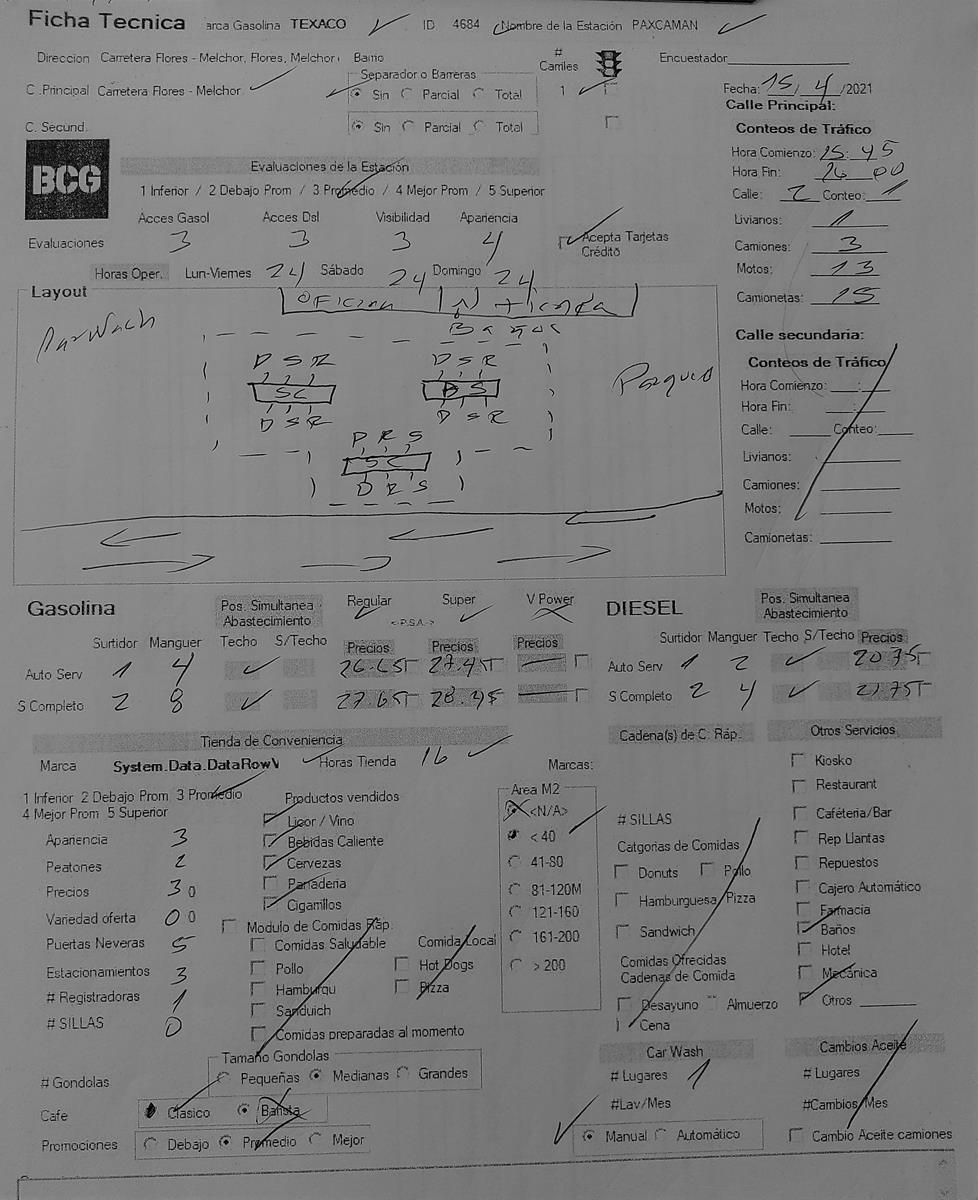 Ficha Tecnica arca Gasolina TEXACO ID 4684 Nombre de la Estación PAXCAMAN
Direccion Carretera Flores - Melchor, Flores, Melchor Barrio # Carriles Encuestador
Separador o Barreras
C. Principal Carretera Flores - Melchor Sin Parcial Total 1 Fecha: 15/4/2021
Calle Principal:
C. Secund. Sin Parcial Total
Conteos de Tráfico
BCG
Evaluaciones de la Estación
Hora Comienzo: 15:45
Hora Fin: 16 00
1 Inferior / 2 Debajo Prom / 3 Promedio / 4 Mejor Prom / 5 Superior
Calle: 2 Conteo: 1
Acces Gasol Acces Dsl Visibilidad Apariencia
Livianos: 1
Evaluaciones 3 3 3 4 Acepta Tarjetas Crédito
Camiones: 3
Motos: 13
Horas Oper. Lun-Viernes 24 Sábado 24 Domingo 24
Camionetas: 15
Layout
Oficina tienda
Baños
Calle secundaria:
Conteos de Tráfico
D S R D S R
SC SC
D S R D S R
Parqueo
Hora Comienzo: :
Hora Fin: :
Calle: Conteo:
D R S
SC
D R S
Livianos:
Camiones:
Motos:
Camionetas:
Gasolina Pos. Simultanea Abastecimiento Regular <-P.S.A.-> Super V Power DIESEL Pos. Simultanea Abastecimiento
Surtidor Manguer Techo S/Techo Precios Precios Precios Surtidor Manguer Techo S/Techo Precios
Auto Serv 1 4 26.65T 27.45T Auto Serv 1 2 20.75T
S Completo 2 8 27.65T 28.45 S Completo 2 4 21.75T
Tienda de Conveniencia Cadena(s) de C. Ráp. Otros Servicios
Marca System.Data.DataRowV Horas Tienda 16 Marcas:
Kiosko
1 Inferior 2 Debajo Prom 3 Promedio
4 Mejor Prom 5 Superior
Productos vendidos
Area M2
<N/A>
Restaurant
Licor / Vino
# SILLAS
Caféteria/Bar
Apariencia 3 Bebidas Caliente < 40 Catgorias de Comidas Rep Llantas
Peatones 2 Cervezas 41-80 Donuts Pollo Repuestos
Precios 3 0 Panaderia 81-120M Hamburguesa Pizza Cajero Automático
Variedad oferta 0 0 Cigarillos 121-160 Farmacia
Puertas Neveras 5 Modulo de Comidas Ráp. 161-200 Sandwich Baños
Comidas Saludable Comida Local
Estacionamientos 3 Pollo Hot Dogs > 200 Comidas Ofrecidas Cadenas de Comida Hotel
Mecánica
# Registradoras 1 Hamburqu Pizza Desayuno Almuerzo Otros
# SILLAS 0 Sanduich Cena
Comidas preparadas al momento
Car Wash Cambios Aceite
Tamaño Gondolas
# Gondolas Pequeñas Medianas Grandes # Lugares 1 # Lugares
Cafe Clasico Barista #Lav/Mes #Cambios/Mes
Promociones Debajo Promedio Mejor Manual Automático Cambio Aceite camiones